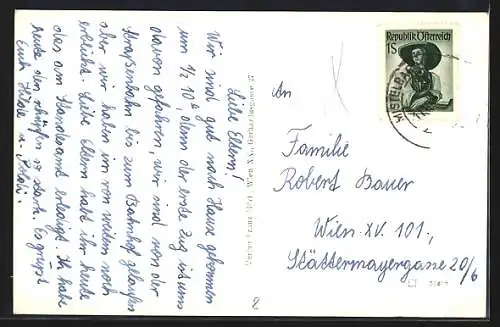 Liebe Eltern!
Wir sind gut nach Hause gekommen
um ½ 10ʰ, denn der erste Zug ist uns
davon gefahren, wir sind von der
Straßenbahn bis zum Bahnhof gelaufen
aber wir haben ihn von weitem noch
erblickt. Liebe Eltern habt ihr heute
das am Standesamt erledigt. Ich habe
heute den
ist stark. Es grüßt
Euch Hilde u.
An
Familie
Robert Bauer
Wien XV. 101.,
Stättermayergasse 20/6
Republik Österreich
1S
MISTELBA
8